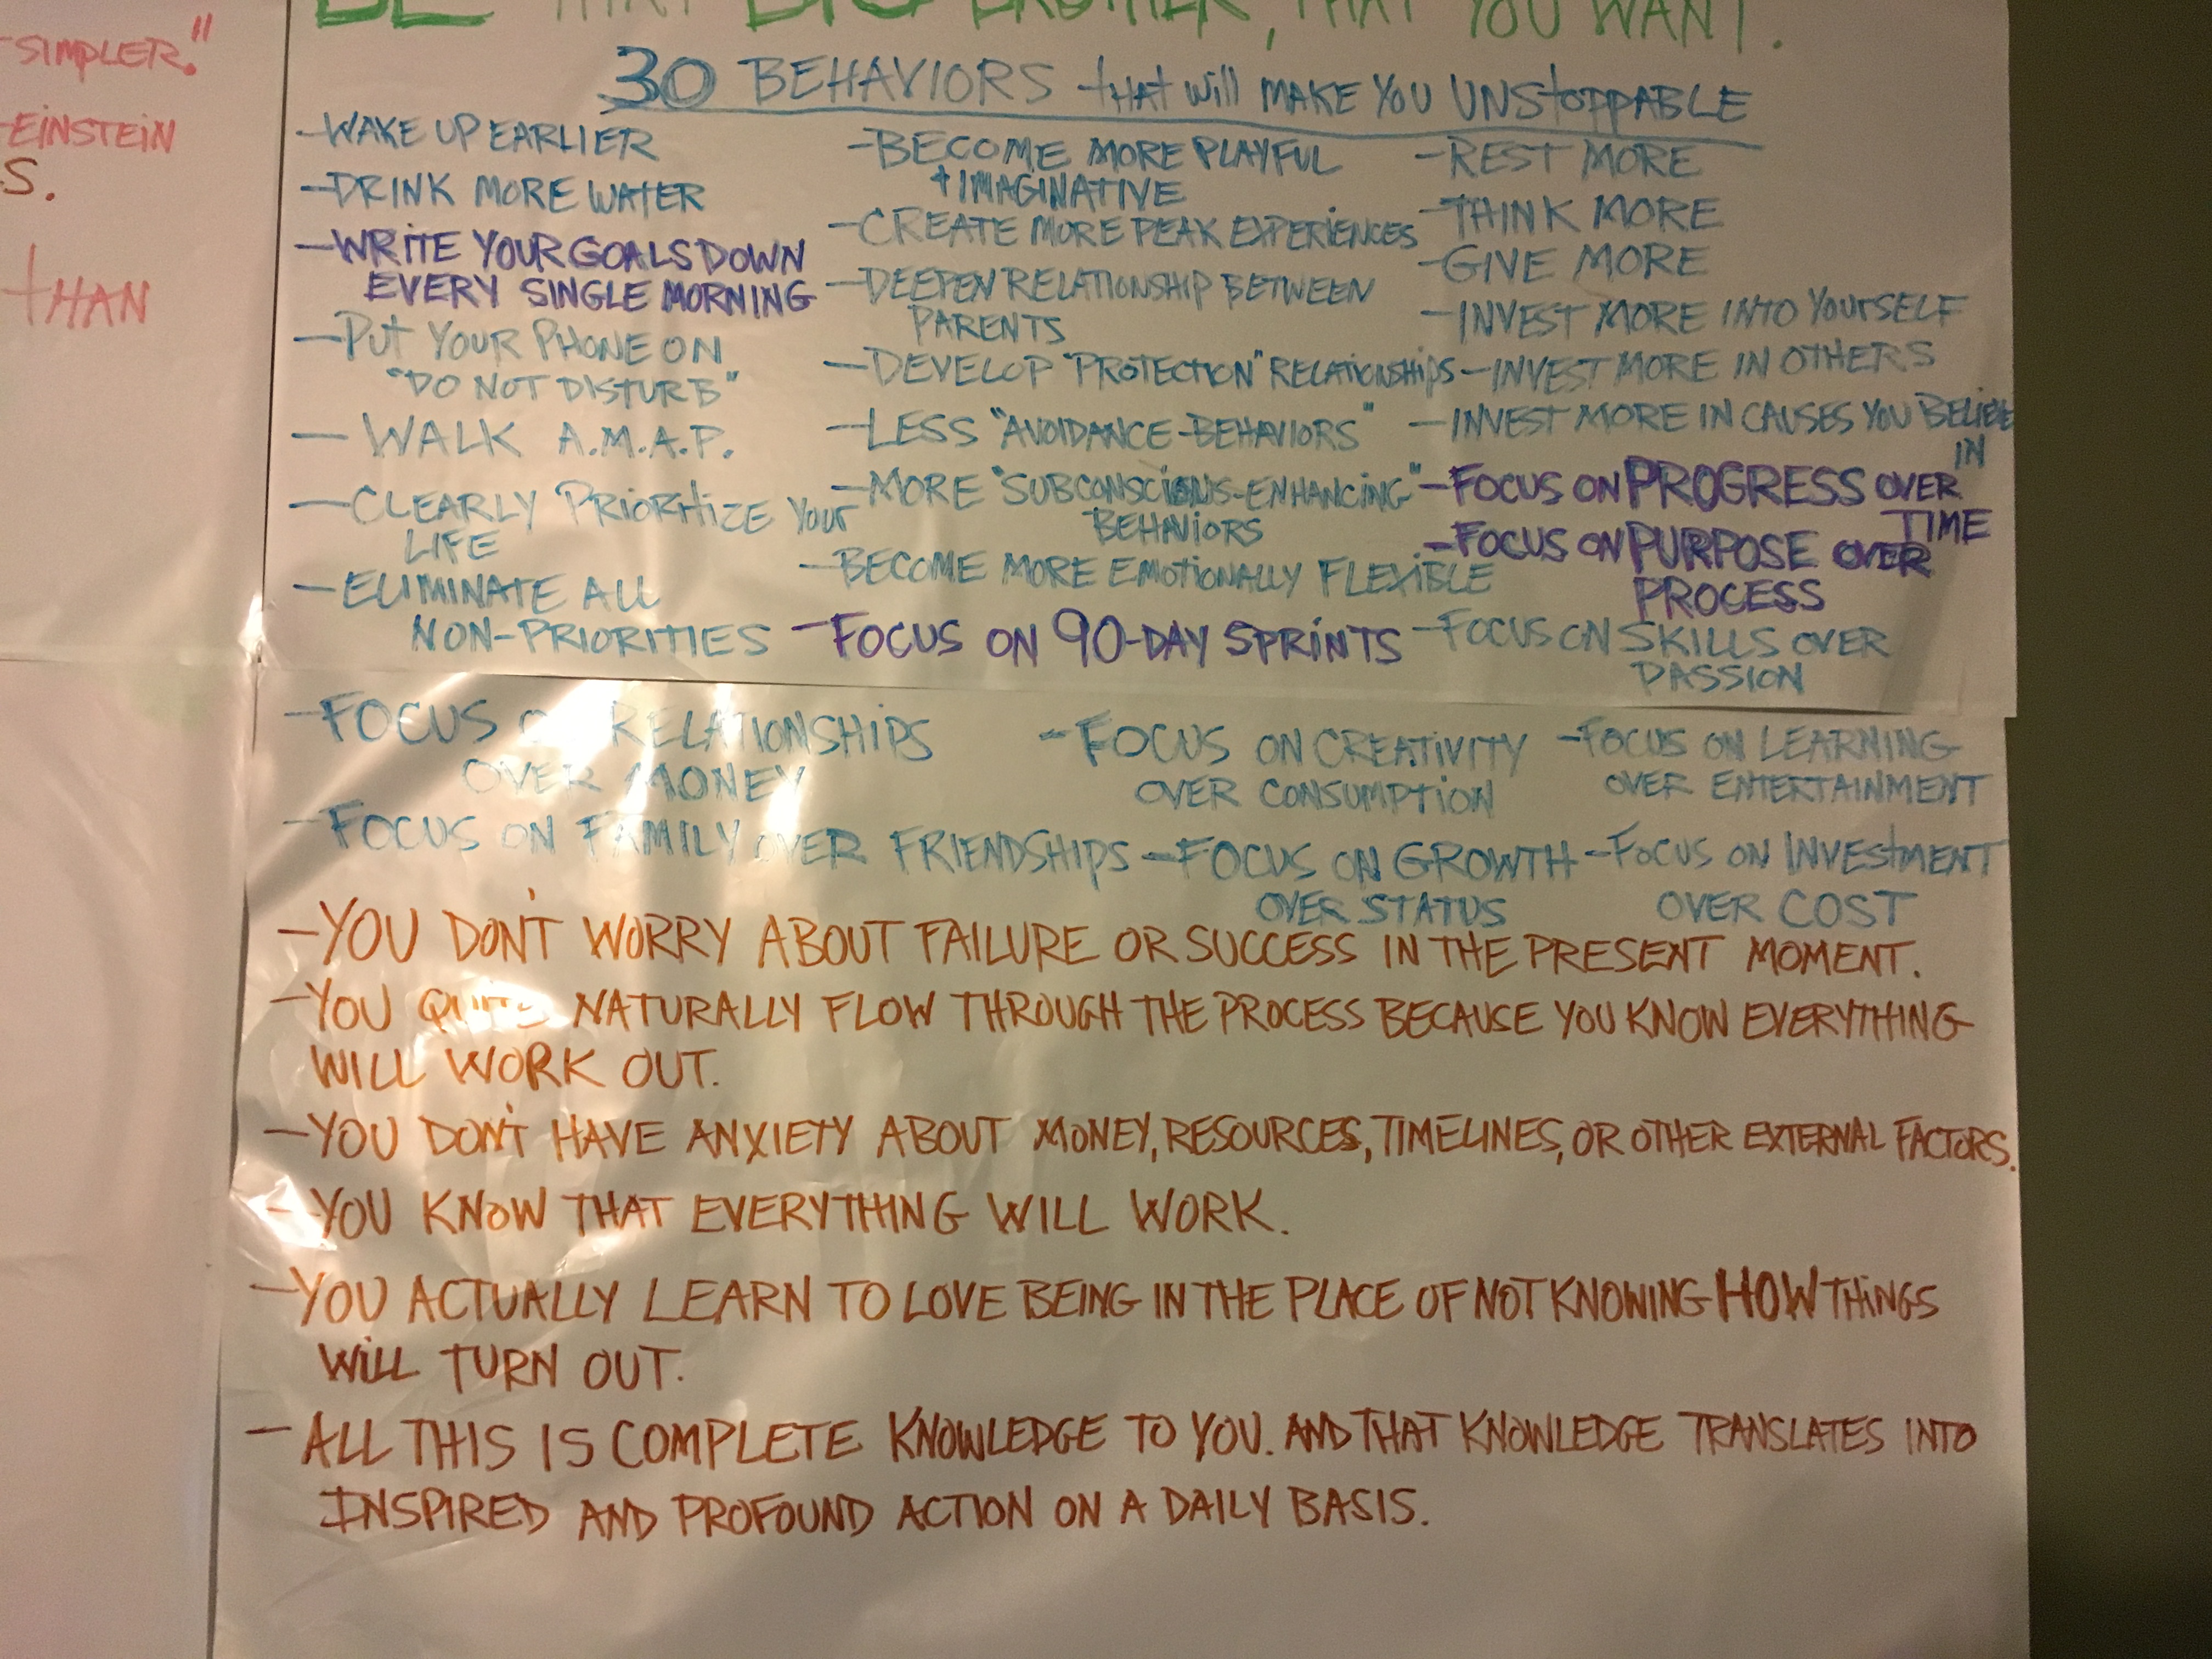 "SIMPLER."
-EINSTEIN
S.
THAN
BE THAT BIG BROTHER, THAT YOU WANT.
30 BEHAVIORS that will MAKE YOU UNStoppABLE
-WAKE UP EARLIER
-DRINK MORE WATER
-WRITE YOUR GOALS DOWN
EVERY SINGLE MORNING
-PUT YOUR PHONE ON
"DO NOT DISTURB"
- WALK A.M.A.P.
-CLEARLY PRIORITIZE YOUR
LIFE
-ELIMINATE ALL
NON-PRIORITIES
-BECOME MORE PLAYFUL
+ IMAGINATIVE
-CREATE MORE PEAK EXPERIENCES
-DEEPEN RELATIONSHIP BETWEEN
PARENTS
-DEVELOP "PROTECTION" RELATIONSHIPS
-LESS "AVOIDANCE-BEHAVIORS"
-MORE "SUBCONSCIOUS-ENHANCING"
BEHAVIORS
-BECOME MORE EMOTIONALLY FLEXIBLE
-FOCUS ON 90-DAY SPRINTS
-REST MORE
-THINK MORE
-GIVE MORE
-INVEST MORE INTO YOURSELF
-INVEST MORE IN OTHERS
-INVEST MORE IN CAUSES YOU BELIEVE
IN
-FOCUS ON PROGRESS OVER
TIME
-FOCUS ON PURPOSE OVER
PROCESS
-FOCUS ON SKILLS OVER
PASSION
-FOCUS ON RELATIONSHIPS
OVER MONEY
-FOCUS ON FAMILY OVER FRIENDSHIPS
-FOCUS ON CREATIVITY
OVER CONSUMPTION
-FOCUS ON GROWTH
OVER STATUS
-FOCUS ON LEARNING
OVER ENTERTAINMENT
-FOCUS ON INVESTMENT
OVER COST
-YOU DON'T WORRY ABOUT FAILURE OR SUCCESS IN THE PRESENT MOMENT.
-YOU QUITE NATURALLY FLOW THROUGH THE PROCESS BECAUSE YOU KNOW EVERYTHING
WILL WORK OUT.
-YOU DON'T HAVE ANXIETY ABOUT MONEY, RESOURCES, TIMELINES, OR OTHER EXTERNAL FACTORS.
-YOU KNOW THAT EVERYTHING WILL WORK.
-YOU ACTUALLY LEARN TO LOVE BEING IN THE PLACE OF NOT KNOWING HOW THINGS
WILL TURN OUT.
- ALL THIS IS COMPLETE KNOWLEDGE TO YOU. AND THAT KNOWLEDGE TRANSLATES INTO
INSPIRED AND PROFOUND ACTION ON A DAILY BASIS.